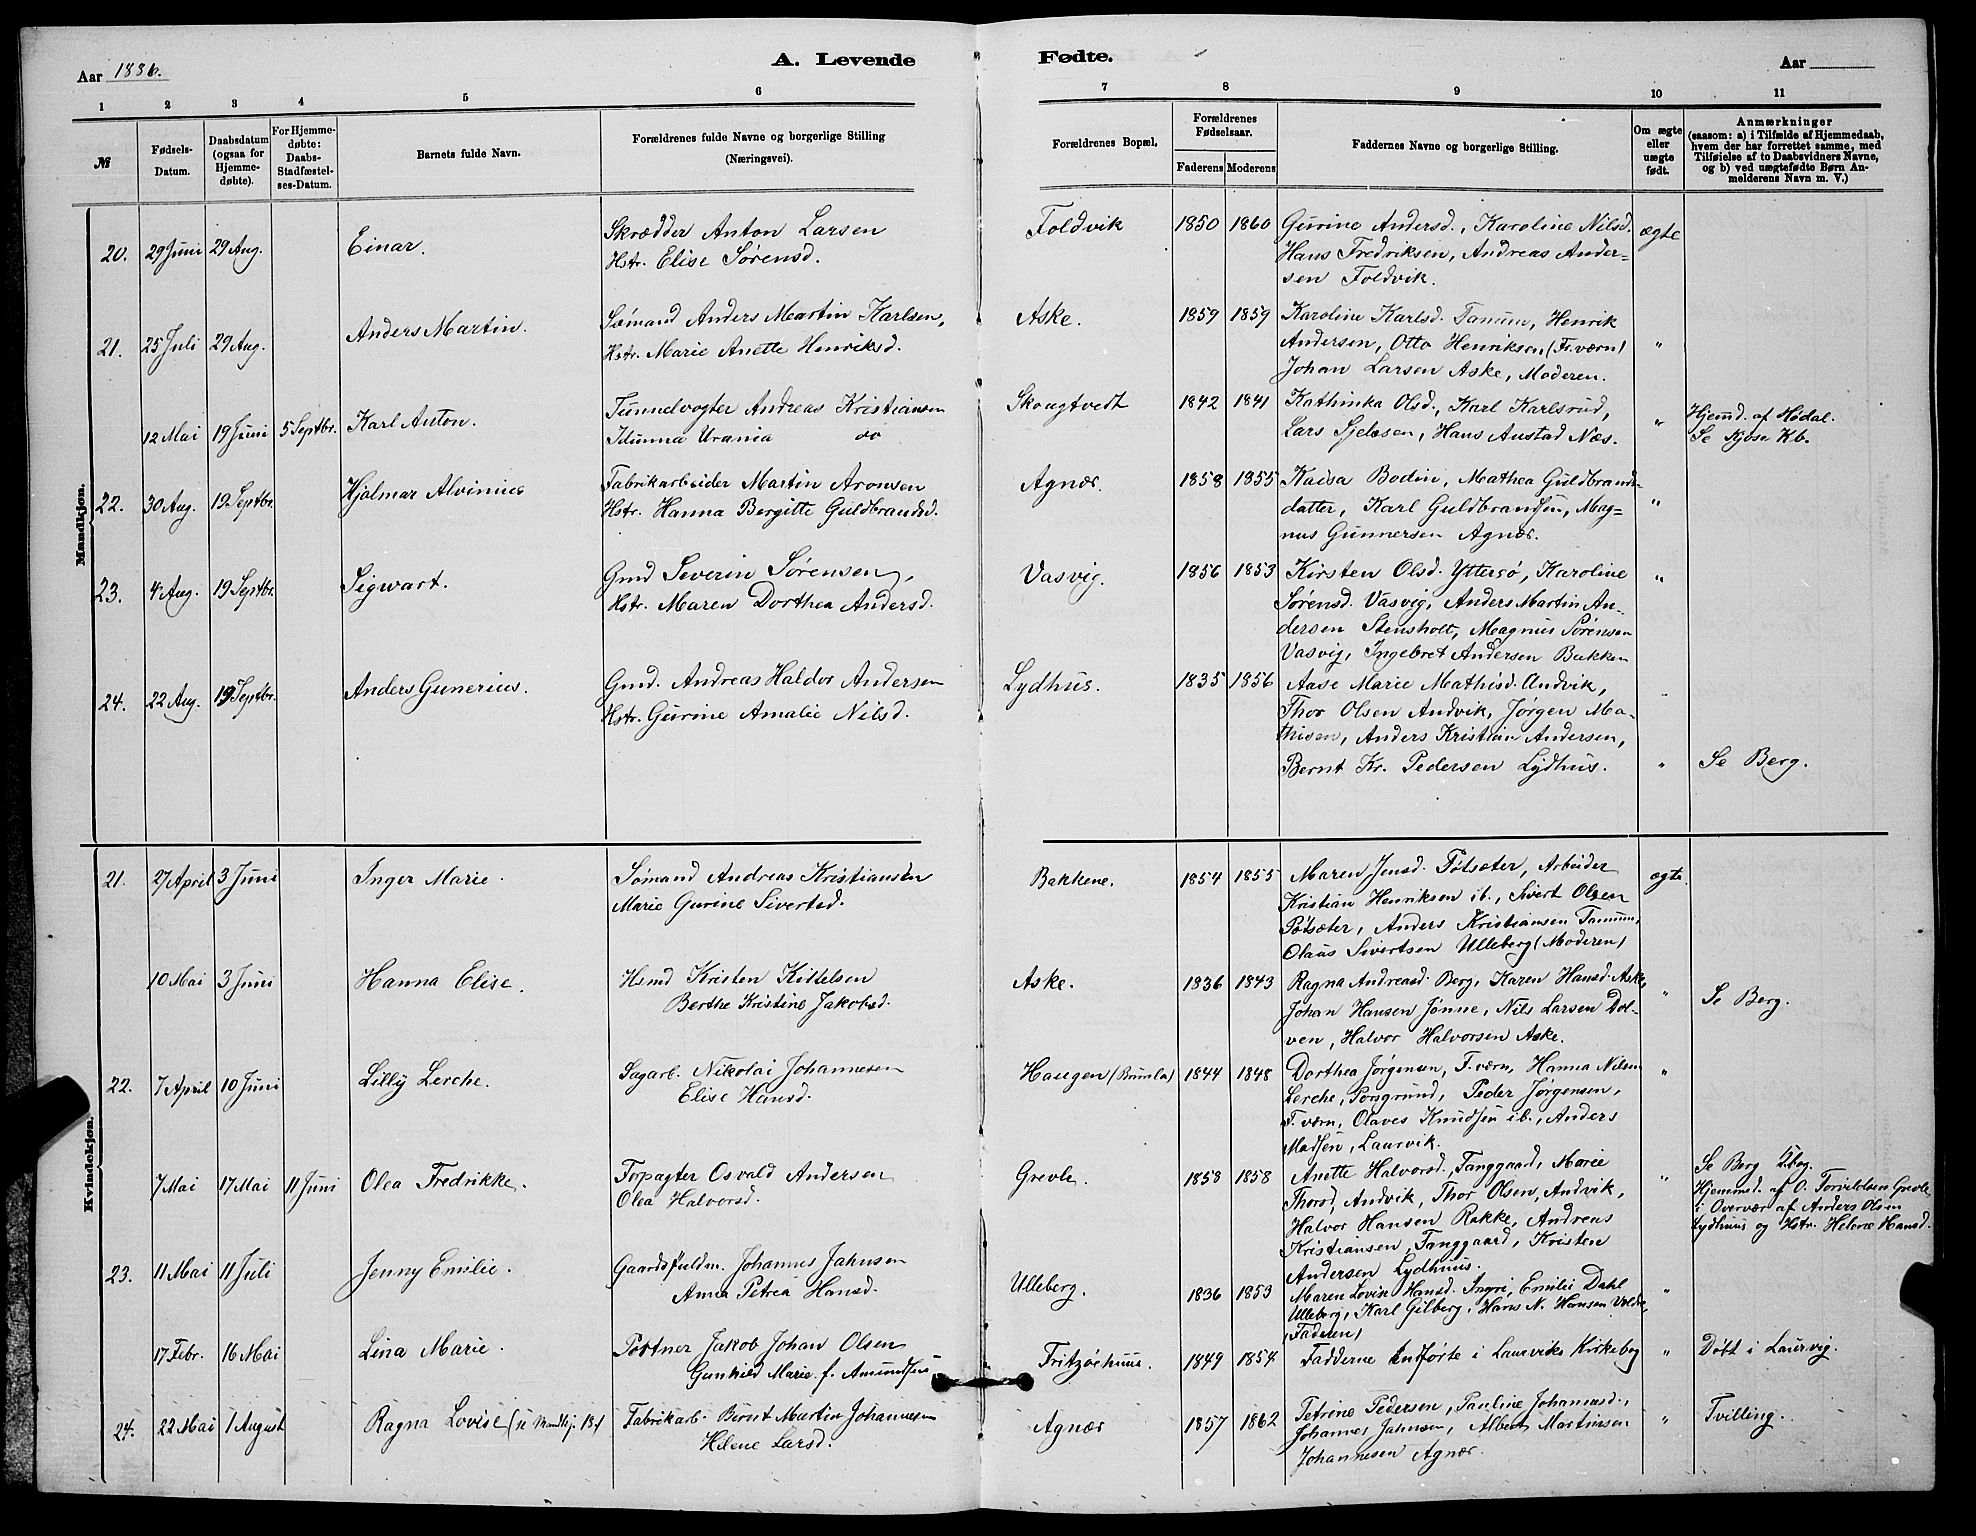 Aar 1886.
A. Levende
Fødte.
Aar
1 2 3 4 5 6
7 8 9 10 11
№
Fødsels-
Datum.
Daabsdatum
(ogsaa for
Hjemme-
døbte).
For Hjemme-
døbte:
Daabs-
Stadfæstel-
ses-Datum.
Barnets fulde Navn.
Forældrenes fulde Navne og borgerlige Stilling
(Næringsvei).
Forældrenes Bopæl.
Forældrenes
Fødselsaar.
Faderens Moderens
Faddernes Navne og borgerlige Stilling.
Om ægte
eller
uægte
født.
Anmærkninger
(saasom: a) i Tilfælde af Hjemmedaab,
hvem der har forrettet samme, med
Tilføielse af to Daabsvidners Navne,
og b) ved uægtefødte Børn An-
melderens Navn m. V.)
Mandkjøn.
20. 29 Juni 29 Aug. Einar.
Skrædder Anton Larsen
Hstr. Elise Sørensd.
Foldvik 1850 1860
Gurine Andersd., Karoline Nilsd.
Hans Fredriksen, Andreas Ander=
sen Foldvik.
ægte
21. 25 Juli 29 Aug. Anders Martin.
Sømand Anders Martin Karlsen,
Hstr. Marie Anette Henriksd.
Aske. 1859 1859
Karoline Karlsd. Tanum, Henrik
Andersen, Otto Henriksen (Fr.værn)
Johan Larsen Aske, Moderen.
"
12 Mai 19 Juni 5 Septbr. Karl Anton.
Tunnelvogter Andreas Kristiansen
Idunna Urania do
Skougtvedt 1842 1841
Kathinka Olsd., Karl Karlsrud,
Lars Sjelesen, Hans Austad Næs.
"
Hjemd. af Hødal.
Se Kjose Kb.
22. 30 Aug. 19 Septbr. Hjalmar Alvinius
Fabrikarbeider Martin Aronsen
Hstr. Hanna Bergitte Guldbrandsd.
Agnær. 1858 1855
Kaisa Bodin, Mathea Guldbrands-
datter, Karl Guldbrandsen, Mag=
nus Gunnersen Agnær.
"
23. 4 Aug. 19 Septbr. Sigwart.
Gmd Severin Sørensen,
Hstr. Maren Dorthea Andersd.
Vasvig. 1856 1853
Kirsten Olsd. Yttersø, Karoline
Sørensd. Vasvig, Anders Martin An-
dersen Stensholt, Magnus Sørensen
Vasvig, Ingebret Andersen Bakken
"
24. 22 Aug. 19 Septbr. Anders Gunerius.
Gmd. Andreas Haldor Andersen
Hstr. Gurine Amalie Nilsd.
Lydhus. 1835 1856
Aase Marie Mathisd. Andvik,
Thor Olsen Andvik, Jørgen Ma-
thisen, Anders Kristian Andersen,
Bernt Kr. Pedersen Lydhus.
"
Se Berg.
Kvindekjøn.
21. 27 April 3 Juni Inger Marie.
Sømand Andreas Kristiansen
Marie Gurine Sivertsd.
Bakkene. 1854 1855
Maren Jensd. Pøtsæter, Arbeider
Kristian Henriksen ib., Sivert Olsen
Pøtsæter, Anders Kristiansen Tanum,
Olaus Sivertsen Ulleberg (Moderen)
ægte
10 Mai 3 Juni Hanna Elise.
Hsmd Kristen Kittelsen
Berthe Kristine Jakobsd.
Aske. 1836 1843
Ragna Andreasd. Berg, Karen Hansd. Aske,
Johan Hansen Jønne, Nils Larsen Dol-
ven, Halvor Halvorsen Aske.
"
Se Berg.
22. 7 April 10 Juni Lilly Lerche.
Sagarb. Nikolai Johannesen
Elise Hansd.
Haugen (Brunla) 1844 1848
Dorthea Jørgensen, F.værn, Hanna Nilsen
Lerche, Porsgrund, Peder Jørgensen,
F.værn, Olaves Knudsen ib., Anders
Madsen, Laurvik.
"
7 Mai 17 Mai 11 Juni Olea Fredrikke.
Forpagter Osvald Andersen
Olea Halvorsd.
Grevle. 1858 1858
Anette Halvorsd., Fanggaard, Marie
Thorsd, Andvik, Thor Olsen, Andvik,
Halvor Hansen Rakke, Andreas
Kristiansen, Fanggaard, Kristen
Andersen Lydhuus.
"
Se Berg Kbog.
Hjemmed. af O. Torvildsen Grevle
i Overvær af Anders Olsen
Lydhuus og Hstr. Helene Hansd.
23. 11 Mai 11 Juli Jenny Emilie.
Gaardsfuldm. Johannes Jahnsen
Anna Petrea Hansd.
Ulleberg. 1836 1853
Maren Lovise Hansd. Ingri, Emilie Dahl
Ulleberg, Karl Gilberg, Hans N. Hansen
(Faderen)
"
17 Febr. 16 Mai Lina Marie.
Portner Jakob Johan Olsen
Gunhild Marie f. Amundsen
Fritzøehuus. 1849 1854
Fadderne indførte i Laurviks Kirkebog
"
Døbt i Laurvig.
24. 22 Mai 1 August Ragna Lovise (u Mandkj. 18)
Fabrikarb. Bernt Martin Johannesen
Helene Larsd.
Agnær 1857 1862
Petrine Pedersen, Pauline Johannesd.,
Johannes Jahnsen, Albert Martinsen
Johannesen Agnær.
"
Tvilling.